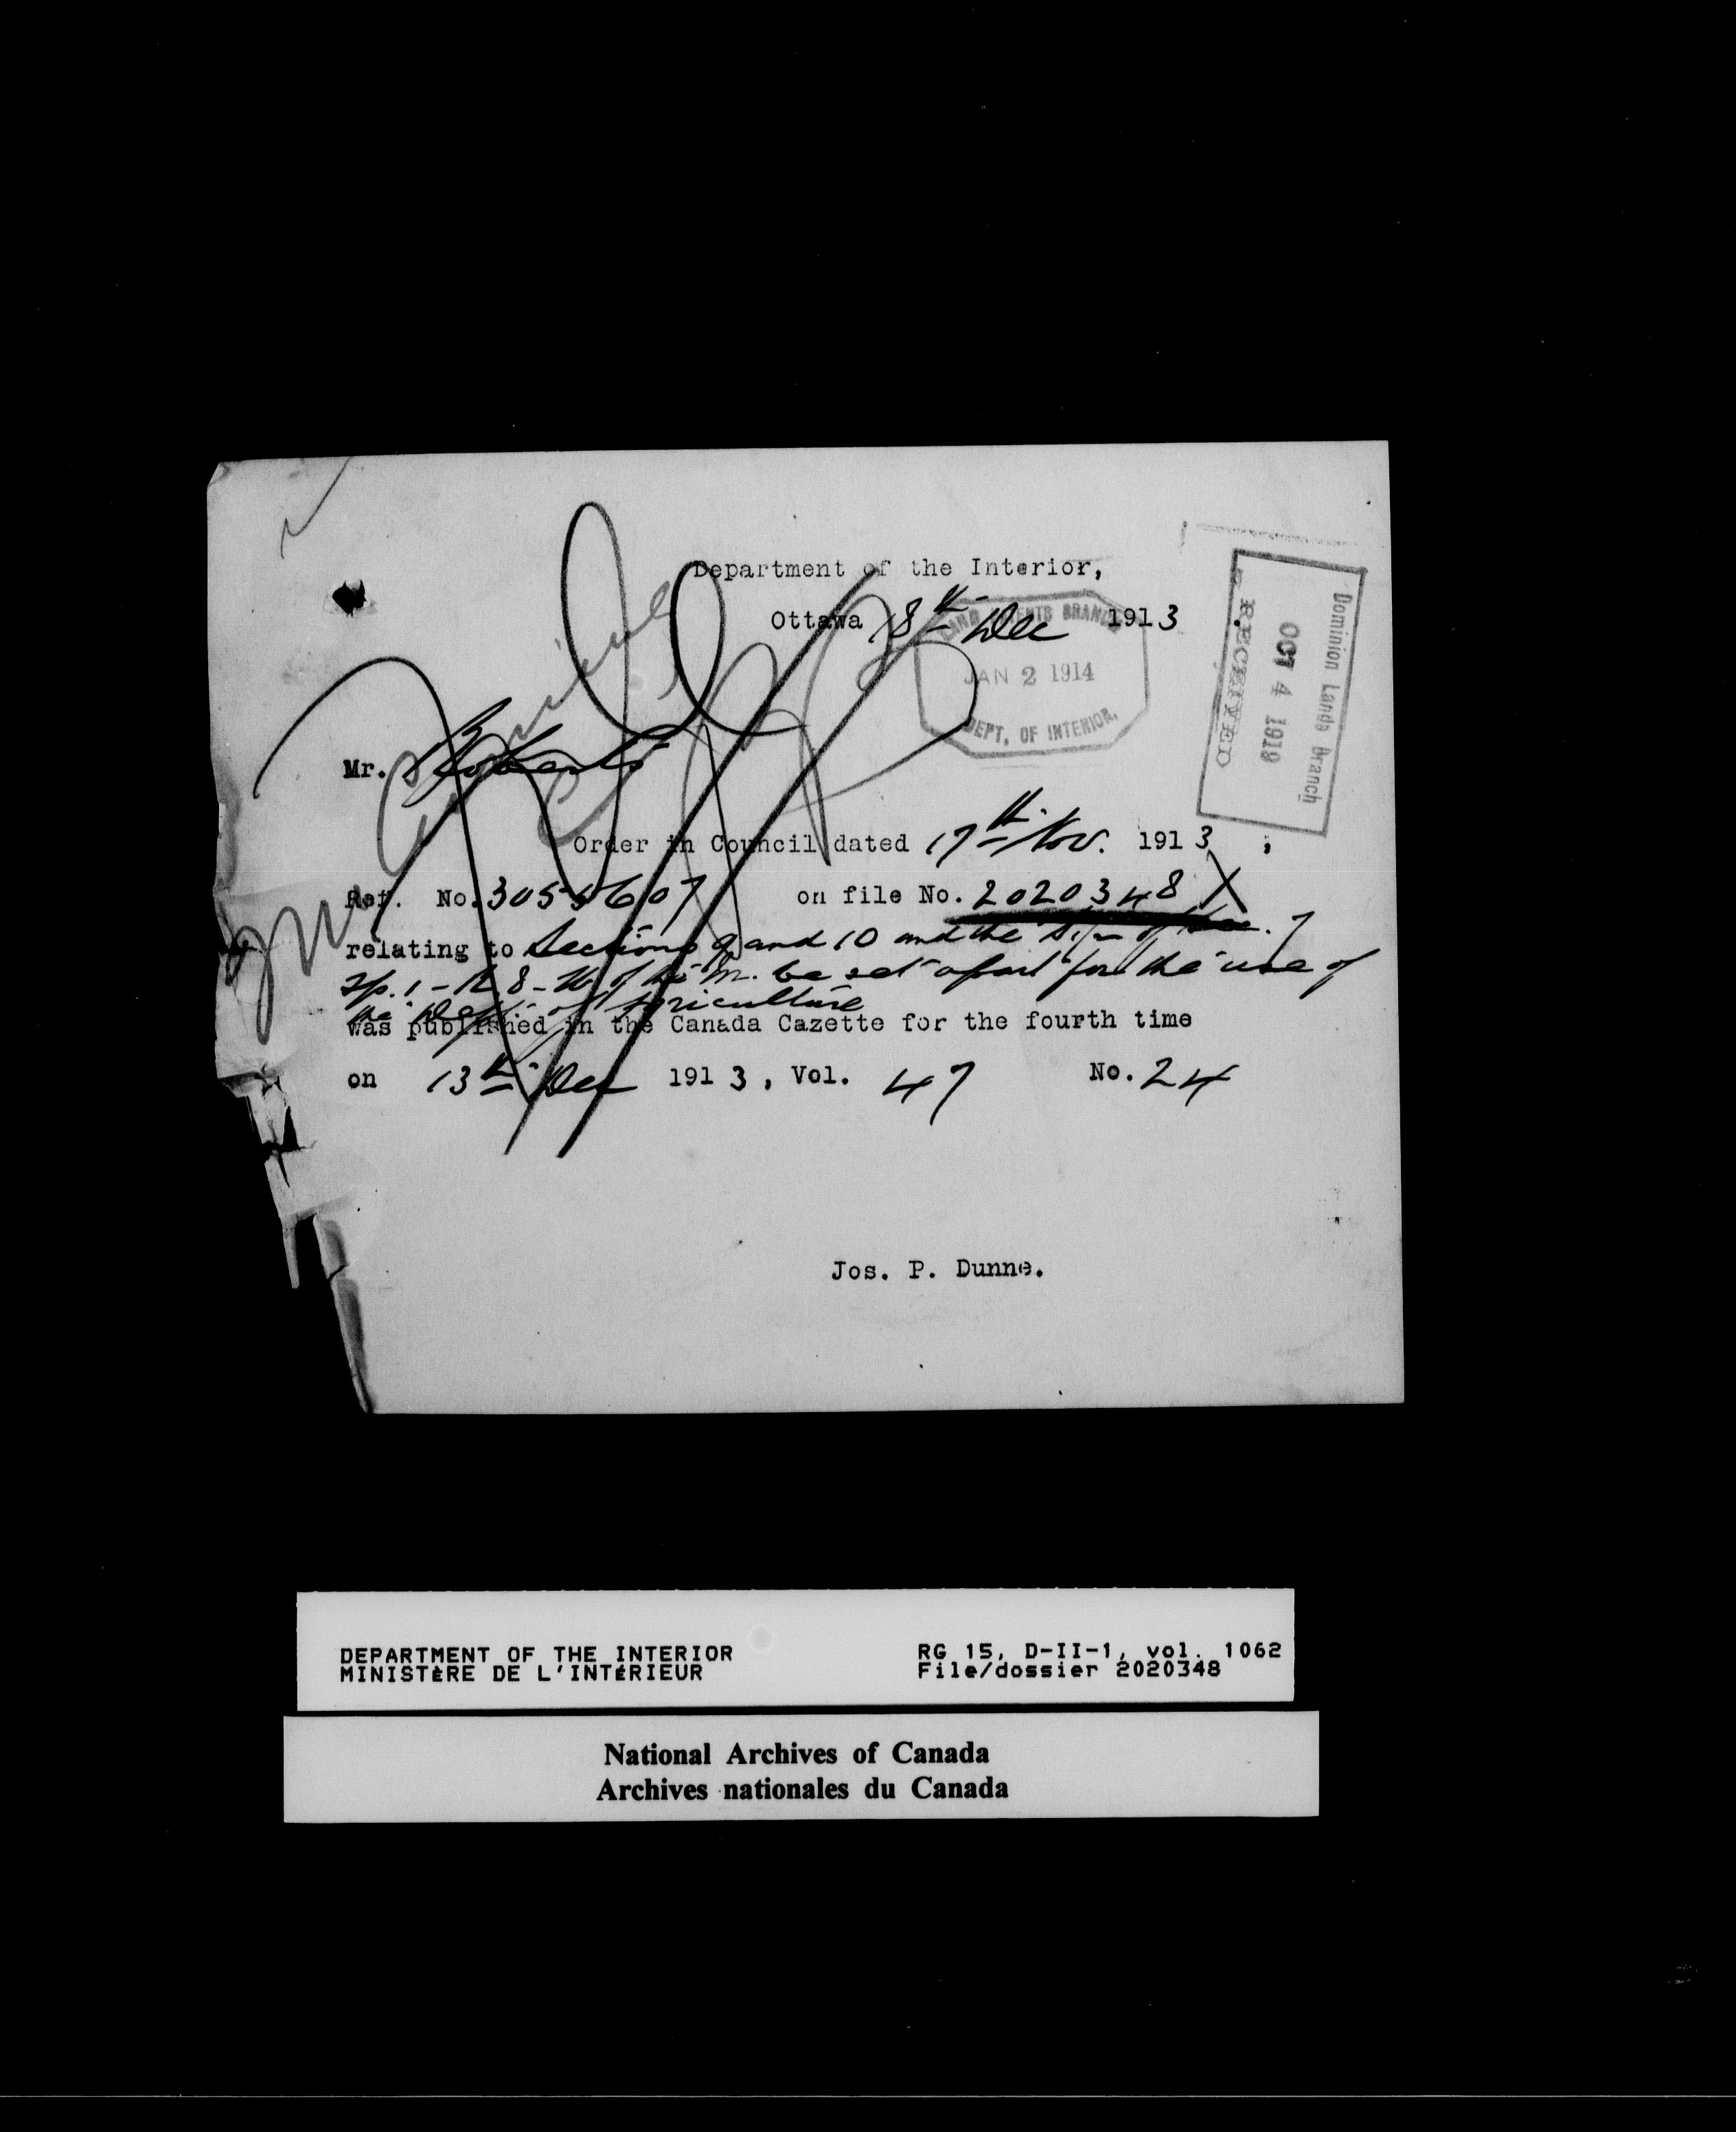 Department of the Interior,
Ottawa 18th Dec 1913
LAND PATENTS BRANCH
JAN 2 1914
DEPT. OF INTERIOR.
Dominion Lands Branch
OCT 4 1919
RECEIVED
Mr. Roberts
Order in Council dated 17th Nov. 1913 ;
Ref. No. 3055607 on file No. 2020348 X
relating to Sections 9 and 10 and the of Sec. 7
Tp. 1 - R. 8 - W. of M. be set apart for the use of
the Dept. of Agriculture
was published in the Canada Cazette for the fourth time
on 13th Dec 1913, Vol. 47 No. 24
Jos. P. Dunne.
DEPARTMENT OF THE INTERIOR
MINISTÈRE DE L'INTÉRIEUR
RG 15, D-II-1, vol. 1062
File/dossier 2020348
National Archives of Canada
Archives nationales du Canada